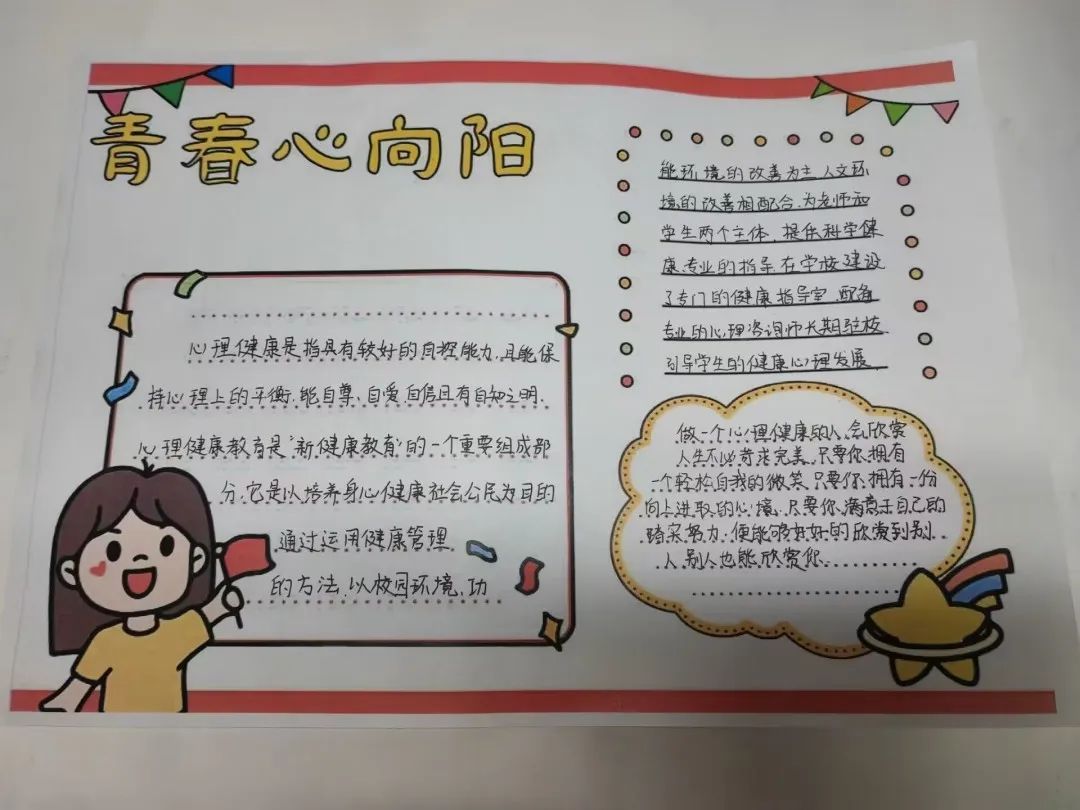 青春心向阳
心理健康是指具有较好的自控能力,且能保
持心理上的平衡,能自尊、自爱、自信且有自知之明.
心理健康教育是“新健康教育”的一个重要组成部
分,它是以培养身心健康社会公民为目的
通过运用健康管理
的方法,以校园环境,功
能环境的改善为主,人文环
境的改善相配合,为老师和
学生两个主体,提供科学健
康,专业的指导,在学校建设
了专门的健康指导室,配备
专业的心理咨询师长期驻校
引导学生的健康心理发展.
做一个心理健康的人,会欣赏
人生不必苛求完美,只要你,拥有
一个轻松自我的微笑,只要你,拥有一份
向上进取的心境,只要你,满意于自己的
踏实努力,便能够好好的欣赏到别
人,别人也能欣赏你.